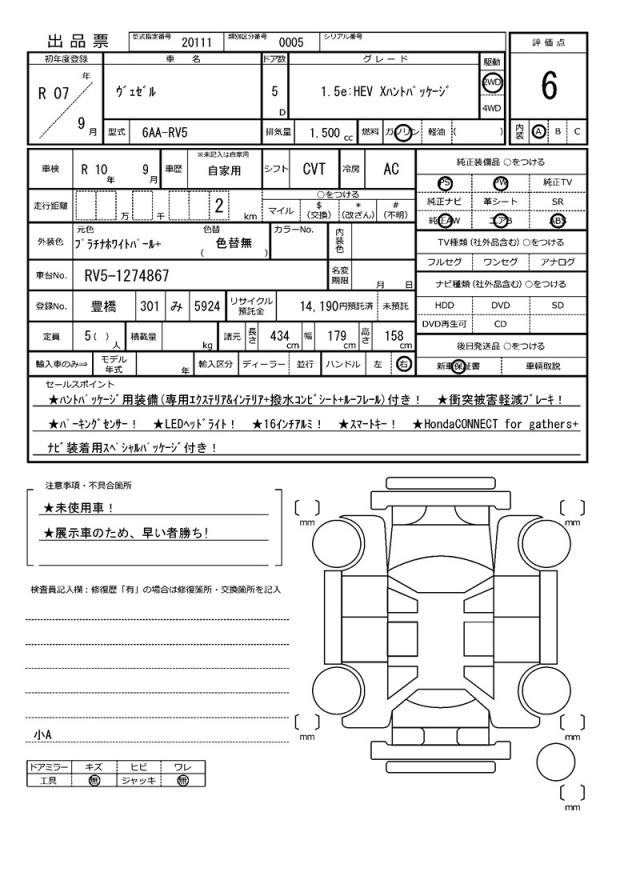 出品票 型式指定番号 20111 類別区分番号 0005 シリアル番号
評価点
初年度登録 車名 ドア数 グレード 駆動
R 07 年 9 月 ヴェゼル 5 D 1.5e:HEV Xハントパッケージ 2WD 4WD
6
型式 6AA-RV5 排気量 1.500 cc 燃料 ガソリン 軽油 ( )
内装 A B C
車検 R 10 年 9 月 車歴 ※未記入は自家用 自家用 シフト CVT 冷房 AC
純正装備品 ○をつける
PS PW 純正TV
純正ナビ 革シート SR
純正AW エアB ABS
走行距離 万 千 2 km
○をつける
マイル $ (交換) * (改ざん) # (不明)
外装色 元色 プラチナホワイトパール+ 色替 ( 色替無 ) カラーNo. 内装色
TV種類 (社外品含む) ○をつける
フルセグ ワンセグ アナログ
車台No. RV5-1274867 名変期限 月 日
ナビ種類 (社外品含む) ○をつける
HDD DVD SD
DVD再生可 CD
登録No. 豊橋 301 み 5924 リサイクル預託金 14,190円預託済 未預託
定員 5 ( ) 人 積載量 kg 諸元 長さ 434 cm 幅 179 cm 高さ 158 cm
後日発送品 ○をつける
新車保証書 車輌取説
輸入車のみ⇒ モデル年式 年 輸入区分 ディーラー 並行 ハンドル 左 右
セールスポイント
★ハントパッケージ用装備(専用エクステリア&インテリア+撥水コンビシート+ルーフレール)付き! ★衝突被害軽減ブレーキ!
★パーキングセンサー! ★LEDヘッドライト! ★16インチアルミ! ★スマートキー! ★HondaCONNECT for gathers+
ナビ装着用スペシャルパッケージ付き!
注意事項・不具合箇所
★未使用車!
★展示車のため、早い者勝ち!
検査員記入欄:修復歴「有」の場合は修復箇所・交換箇所を記入
小A
ドアミラー キズ ヒビ ワレ
工具 無 ジャッキ 無
[ ] mm
[ ] mm
[ ] mm
[ ] mm
[ ] mm